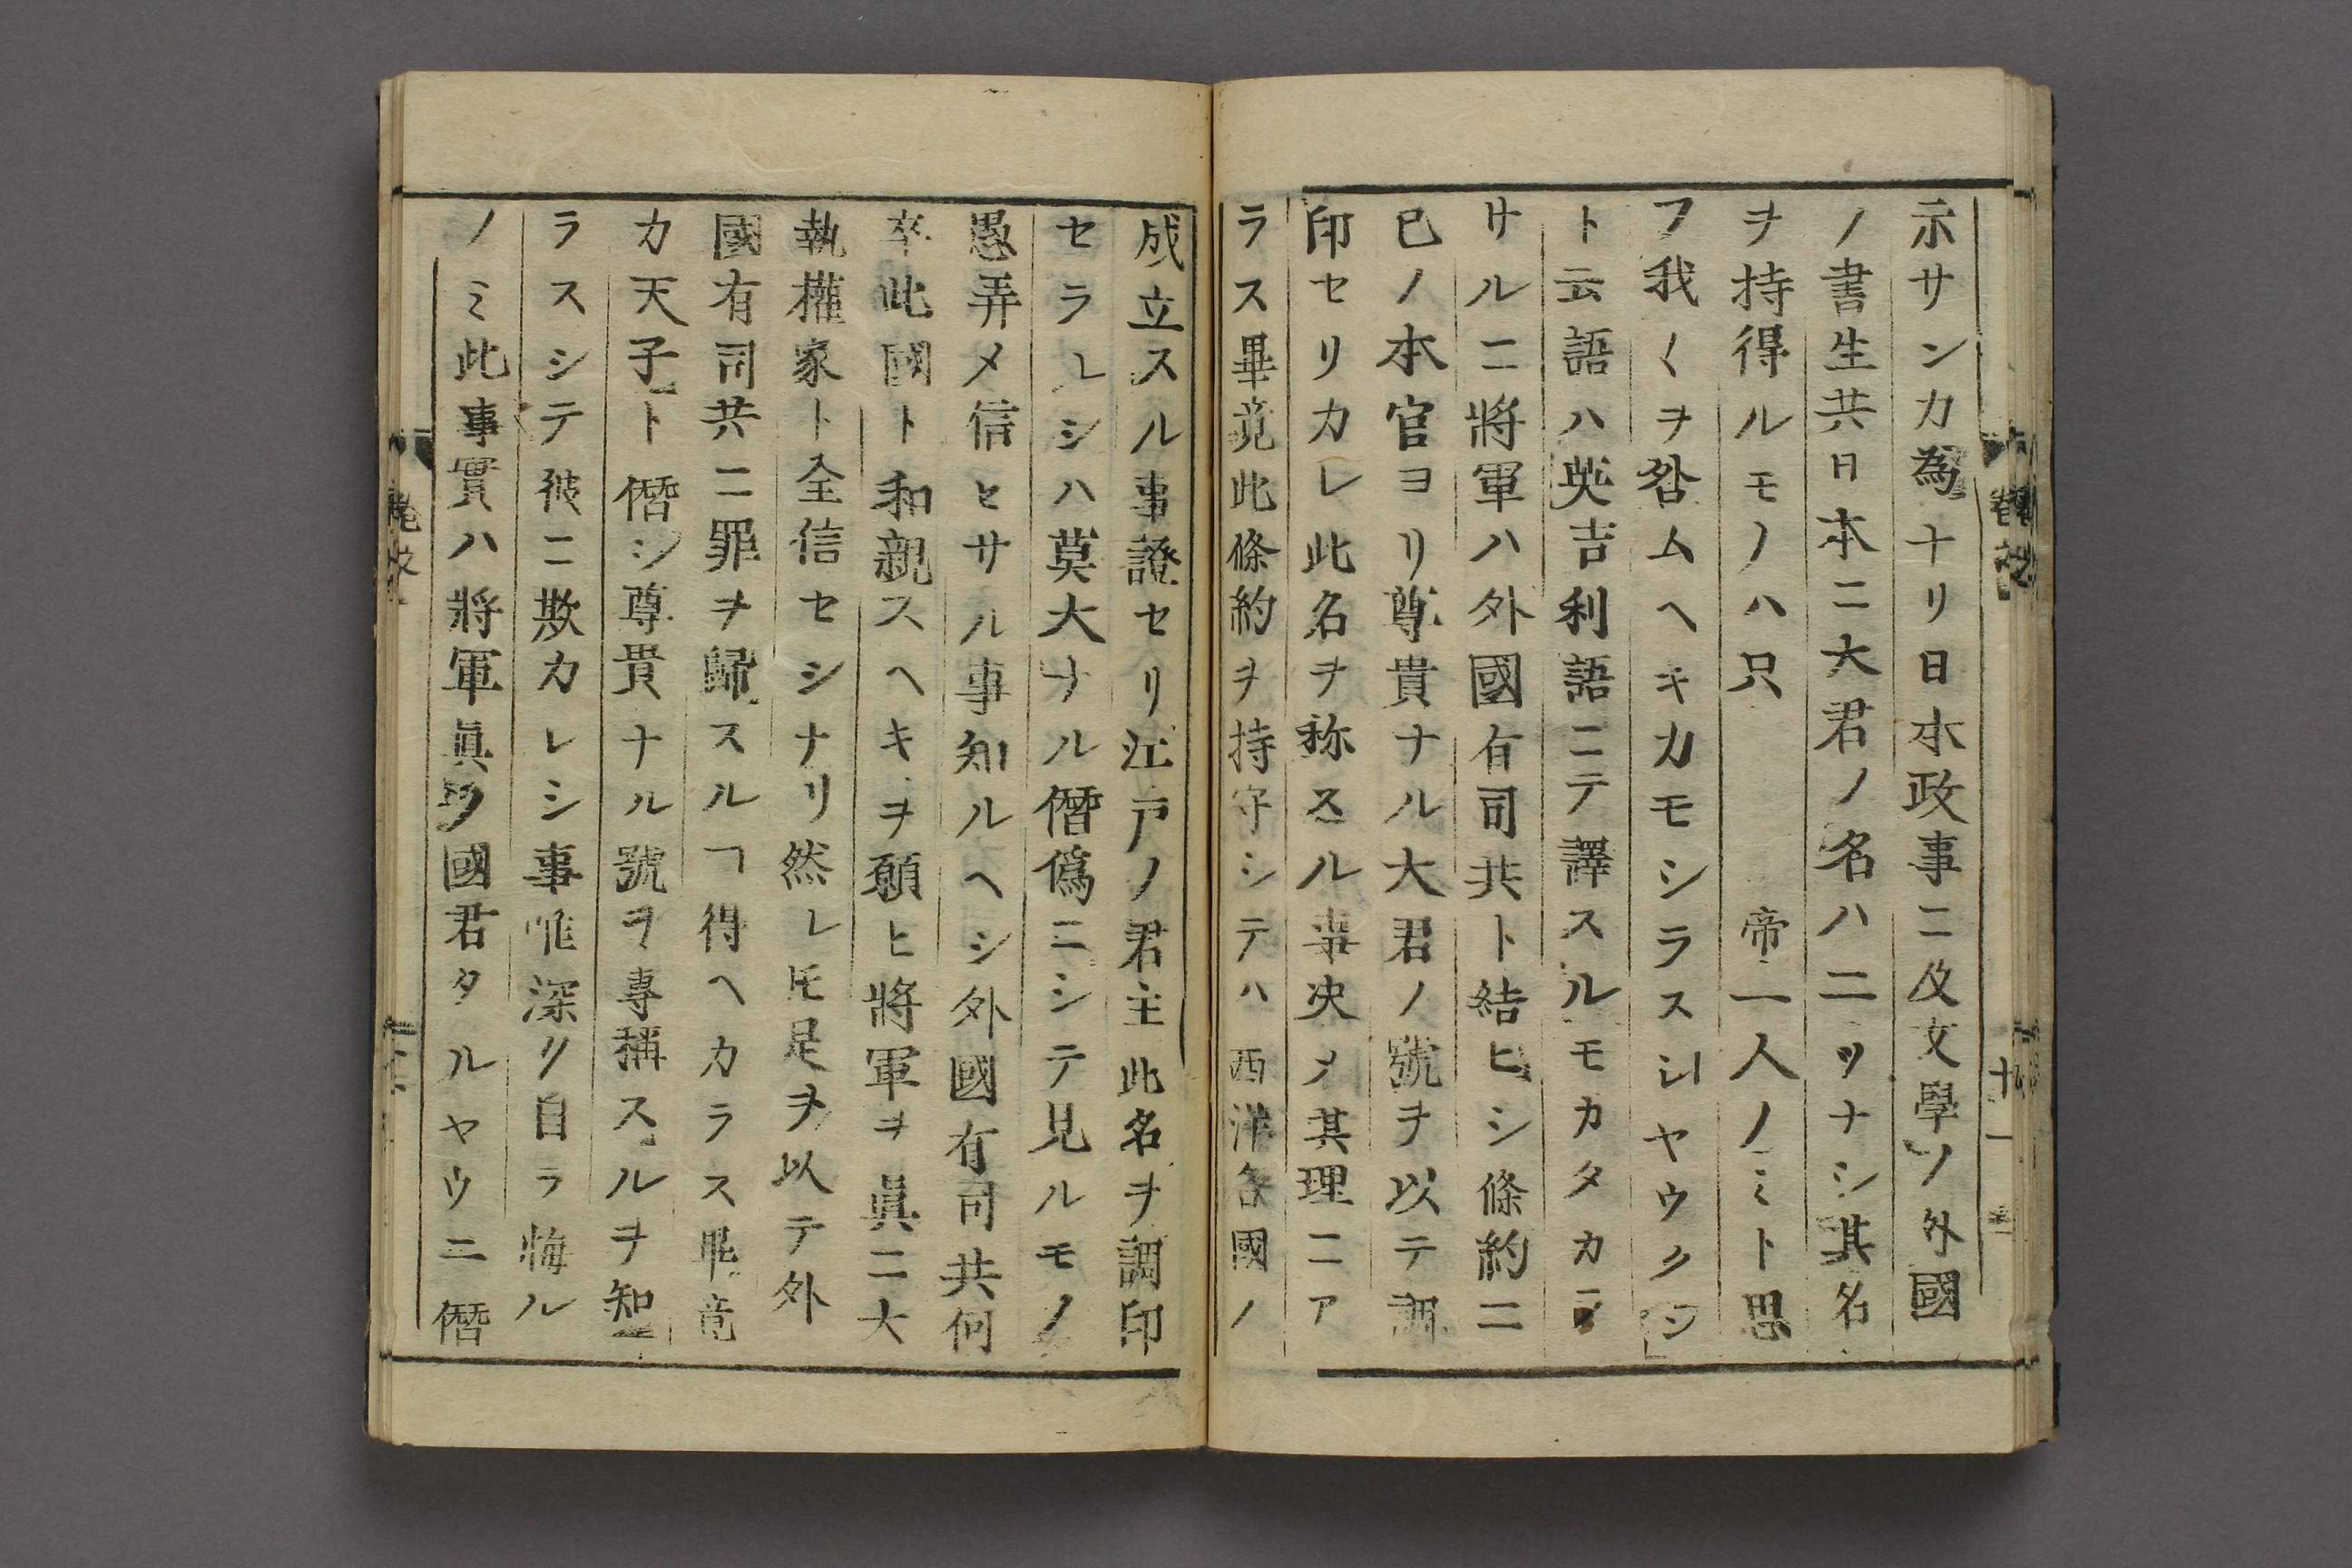 示サンカ為ナリ日本政事ニ及文學ノ外國
ノ書生共日本ニ大君ノ名ハ二ツナシ其名
ヲ持得ルモノハ只 帝一人ノミト思
フ我〱ヲ咎ムヘキカモシラスシヤウクシ
ト云語ハ英吉利語ニテ譯スルモカタカラ
サルニ將軍ハ外國有司共ト結ヒシ條約ニ
已ノ本官ヨリ尊貴ナル大君ノ號ヲ以テ調
印セリカレ此名ヲ称スル事决メ其理ニア
ラス畢竟此條約ヲ持守シテハ西洋各國ノ
成立スル事證セリ江戸ノ君主此名ヲ調印
セラレシハ莫大ナル僭偽ニシテ見ルモノ
愚弄メ信セサル事知ルヘシ外國有司共何
卒此國ト和親スヘキヲ願ヒ將軍ヲ眞ニ大
執權家ト全信セシナリ然レ𪜈足ヲ以テ外
國有司共ニ罪ヲ歸スルヿ得ヘカラス畢竟
カ天子ト僭シ尊貴ナル號ヲ專稱スルヲ知
ラスシテ彼ニ欺カレシ事惟深ク自ラ悔ル
ノミ此事實ハ將軍眞ノ國君タルヤウニ僭
十一